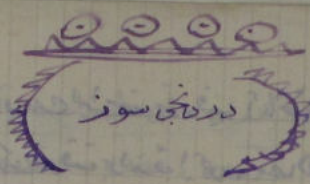 دردنجی سوز